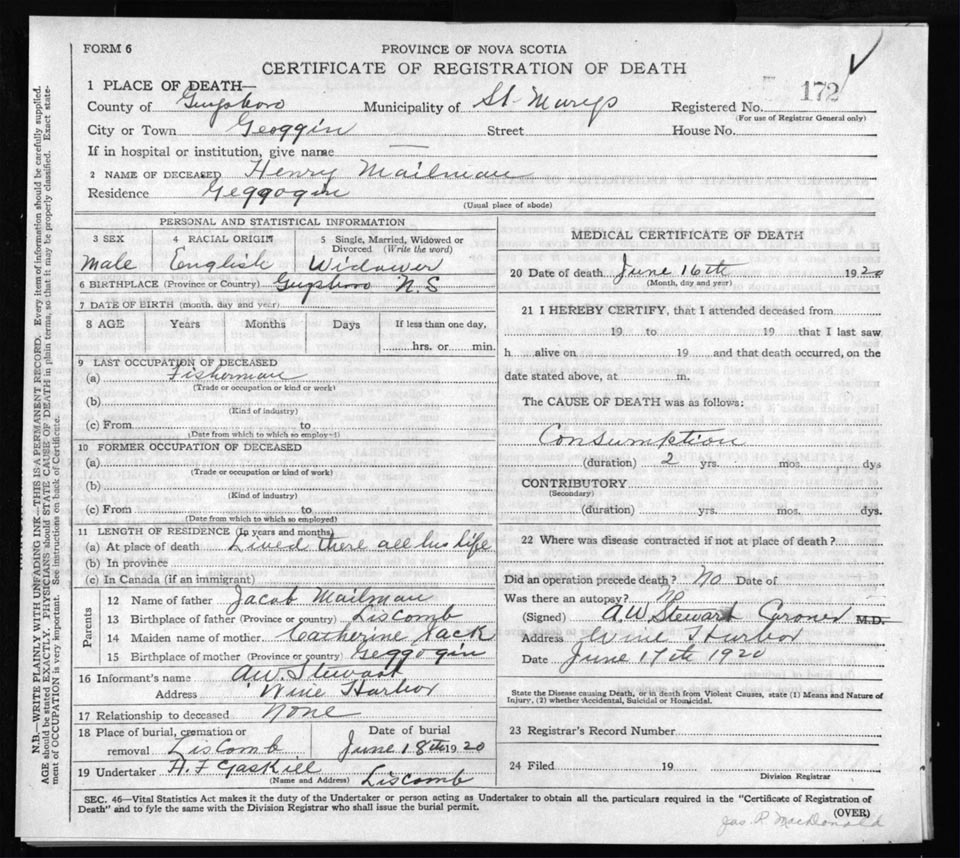 FORM 6
PROVINCE OF NOVA SCOTIA
CERTIFICATE OF REGISTRATION OF DEATH
172
1 PLACE OF DEATH—
County of Guysboro Municipality of St Marys Registered No.
(For use of Registrar General only)
City or Town Geoggin Street House No.
If in hospital or institution, give name —
2 NAME OF DECEASED Henry Mailman
Residence Geggogin
(Usual place of abode)
PERSONAL AND STATISTICAL INFORMATION
3 SEX 4 RACIAL ORIGIN 5 Single, Married, Widowed or Divorced (Write the word)
Male English Widower
6 BIRTHPLACE (Province or Country) Guysboro N.S
7 DATE OF BIRTH (month, day and year)
8 AGE Years Months Days If less than one day,
hrs. or min.
9 LAST OCCUPATION OF DECEASED
(a) Fisherman
(Trade or occupation or kind or work)
(b)
(Kind of industry)
(c) From to
(Date from which to which so employed)
10 FORMER OCCUPATION OF DECEASED
(a)
(Trade or occupation or kind of work)
(b)
(Kind of industry)
(c) From to
(Date from which to which so employed)
11 LENGTH OF RESIDENCE (In years and months)
(a) At place of death Lived there all his life
(b) In province
(c) In Canada (if an immigrant)
Parents
12 Name of father Jacob Mailman
13 Birthplace of father (Province or country) Liscomb
14 Maiden name of mother Catherine Jack
15 Birthplace of mother (Province or country) Geggogin
16 Informant's name A.W. Stewart
Address Wine Harbor
17 Relationship to deceased None
18 Place of burial, cremation or removal Liscomb
Date of burial
June 18th 1920
19 Undertaker H. F Gaskill
(Name and Address) Liscomb
MEDICAL CERTIFICATE OF DEATH
20 Date of death June 16th 1920
(Month, day and year)
21 I HEREBY CERTIFY, that I attended deceased from
19 to 19 that I last saw
h alive on 19 and that death occurred, on the
date stated above, at m.
The CAUSE OF DEATH was as follows:
Consumption
(duration) 2 yrs. mos. dys
CONTRIBUTORY
(Secondary)
(duration) yrs. mos. dys.
22 Where was disease contracted if not at place of death?
Did an operation precede death? No Date of
Was there an autopsy? No
(Signed) A.W. Stewart Coroner M.D.
Address Wine Harbor
Date June 17th 1920
State the Disease causing Death, or in death from Violent Causes, state (1) Means and Nature of
Injury, (2) whether Accidental, Suicidal or Homicidal.
23 Registrar's Record Number
24 Filed 19
Division Registrar
SEC. 46—Vital Statistics Act makes it the duty of the Undertaker or person acting as Undertaker to obtain all the particulars required in the "Certificate of Registration of
Death" and to fyle the same with the Division Registrar who shall issue the burial permit.
(OVER)
Jas. R. MacDonald
N.B.—WRITE PLAINLY WITH UNFADING INK—THIS IS A PERMANENT RECORD. Every item of information should be carefully supplied.
AGE should be stated EXACTLY. PHYSICIANS should STATE CAUSE OF DEATH in plain terms, so that it may be properly classified. Exact state-
ment of OCCUPATION is very important. See instructions on back of Certificate.